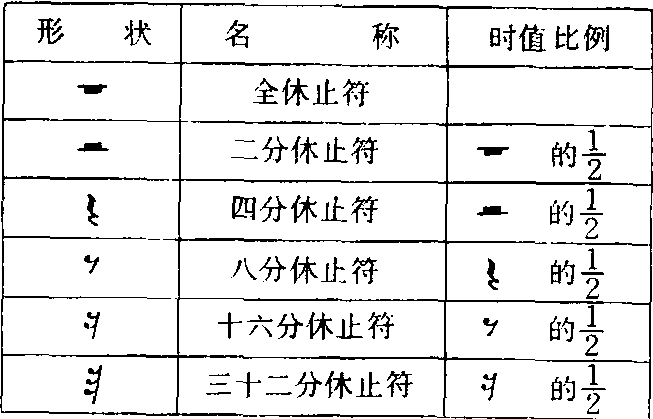 形 状 名 称 时值比例
𝄻 全休止符
𝄼 二分休止符 𝄻 的1/2
𝄽 四分休止符 𝄼 的1/2
𝄾 八分休止符 𝄽 的1/2
𝄿 十六分休止符 𝄾 的1/2
𝅀 三十二分休止符 𝄿 的1/2